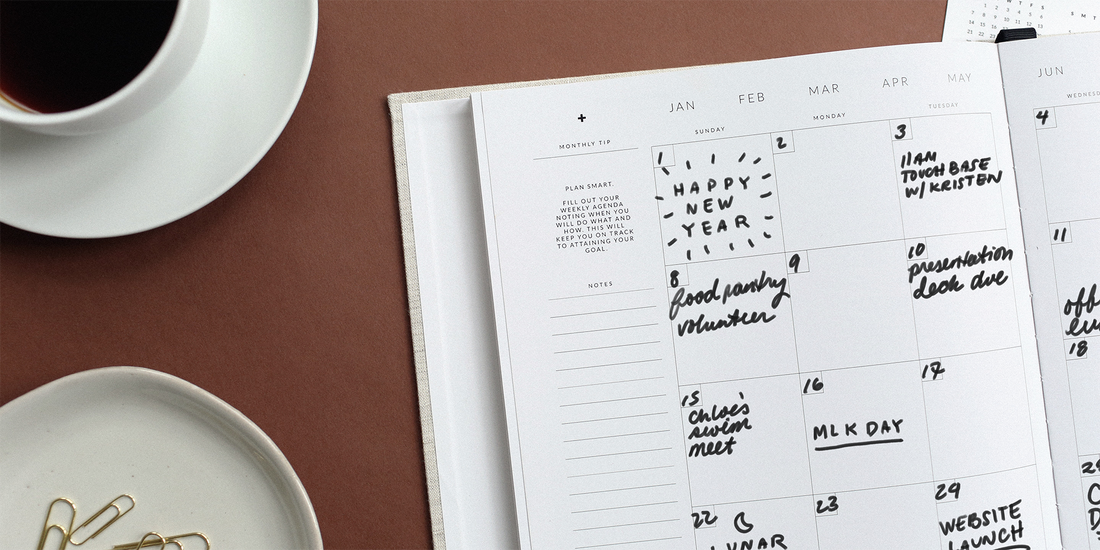 JAN FEB MAR APR MAY JUN
SUNDAY MONDAY TUESDAY
MONTHLY TIP
PLAN SMART.
FILL OUT YOUR
WEEKLY AGENDA
NOTING WHEN YOU
WILL DO WHAT AND
HOW. THIS WILL
KEEP YOU ON TRACK
TO ATTAINING YOUR
GOAL.
NOTES
1
HAPPY
NEW
YEAR
2
3
11AM
TOUCH BASE
W/ KRISTEN
4
8
food pantry
volunteer
9
10
presentation
deck due
11
15
chloe's
swim
meet
16
MLK DAY
17
18
22
LUNAR
23
29
WEBSITE
LAUNCH